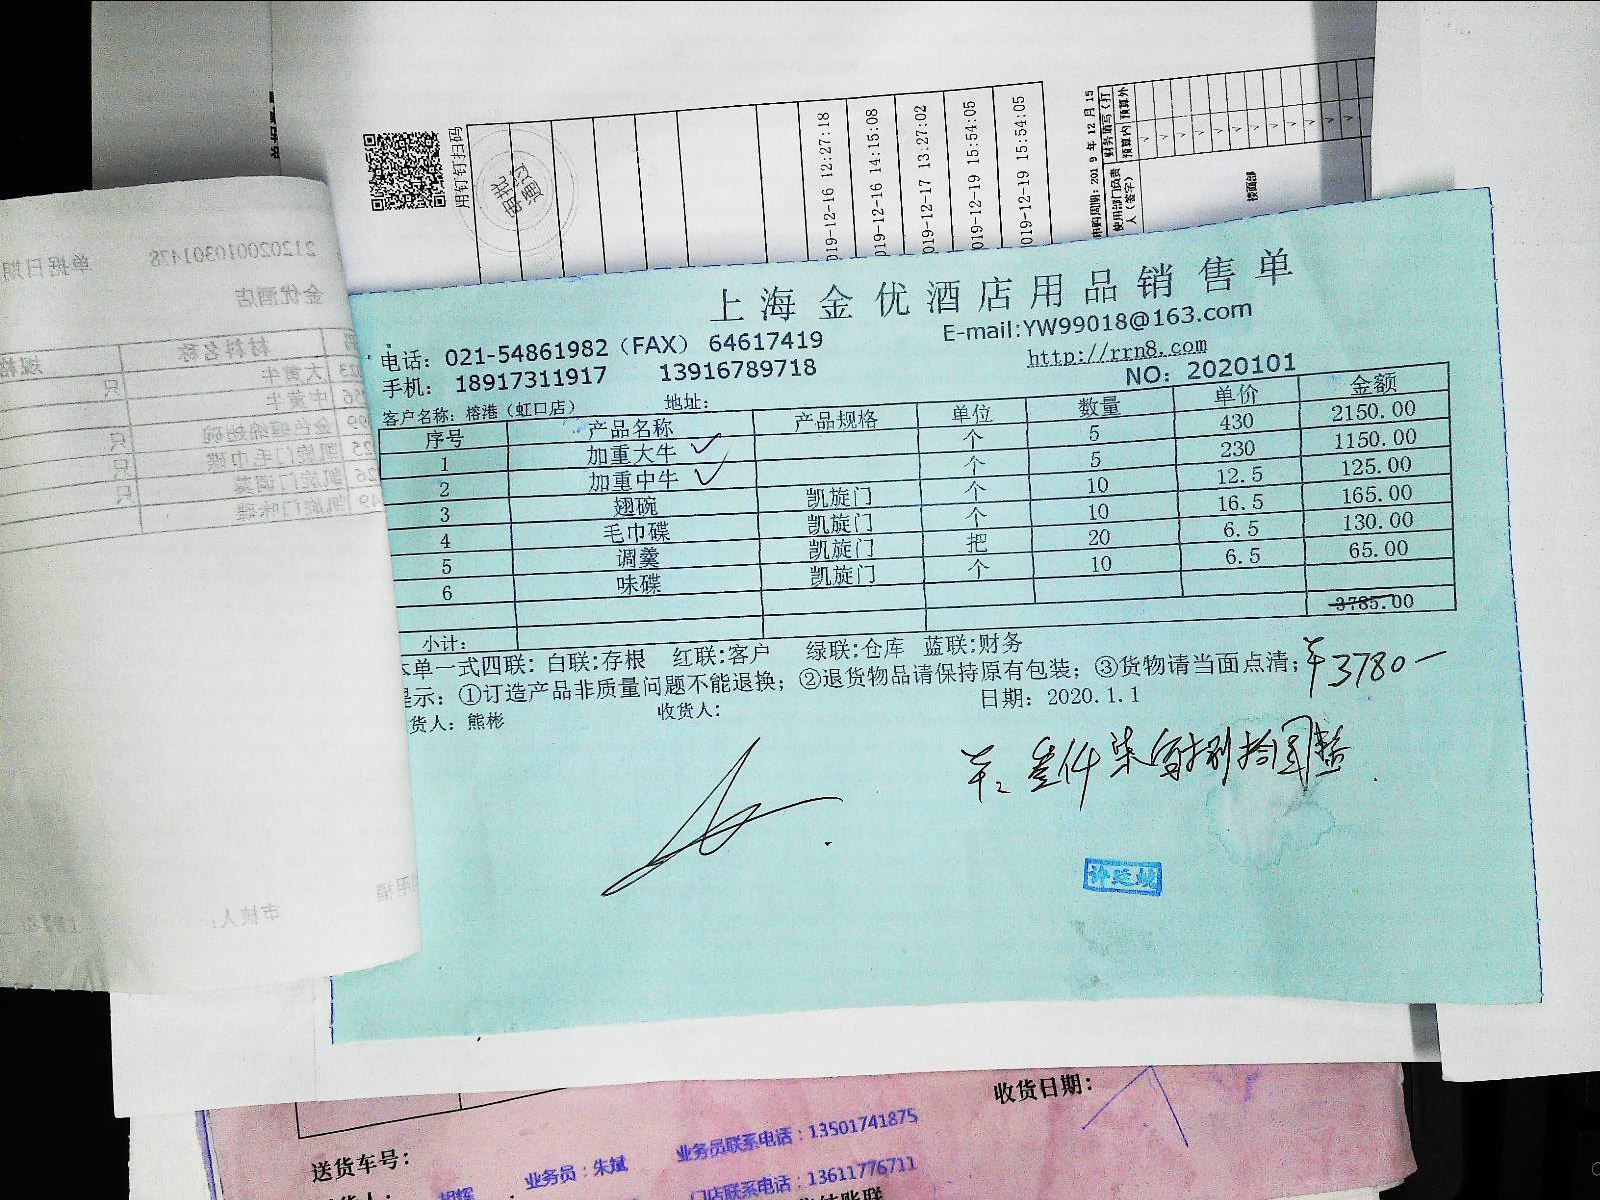 用钉钉扫码
019-12-16 12:27:18
019-12-16 14:15:08
019-12-17 13:27:02
019-12-19 15:54:05
019-12-19 15:54:05
2019 年 12 月 15
使用部门负责人(签字)
财务填写(打
预算内 预算外
楼面部
212020010301478 单据日期
金优酒店
材料名称 规格
大黄牛 只
中黄牛
金色螺纹翅碗 只
凯旋门毛巾碟 只
凯旋门调羹 只
凯旋门味碟
审核人:
上海金优酒店用品销售单
电话: 021-54861982(FAX) 64617419 E-mail:YW99018@163.com
手机: 18917311917 13916789718 http://rrn8.com
NO: 2020101
客户名称: 榕港(虹口店) 地址:
序号 产品名称 产品规格 单位 数量 单价 金额
1 加重大牛 个 5 430 2150.00
2 加重中牛 个 5 230 1150.00
3 翅碗 凯旋门 个 10 12.5 125.00
4 毛巾碟 凯旋门 个 10 16.5 165.00
5 调羹 凯旋门 把 20 6.5 130.00
6 味碟 凯旋门 个 10 6.5 65.00
小计: 3785.00
本单一式四联: 白联:存根 红联:客户 绿联:仓库 蓝联:财务
提示: ①订造产品非质量问题不能退换; ②退货物品请保持原有包装; ③货物请当面点清;
¥3780-
货人: 熊彬 收货人: 日期: 2020.1.1
叁仟柒佰捌拾圆整
收货日期:
送货车号:
业务员:朱斌 业务员联系电话:13501741875
门店联系电话:13611776711